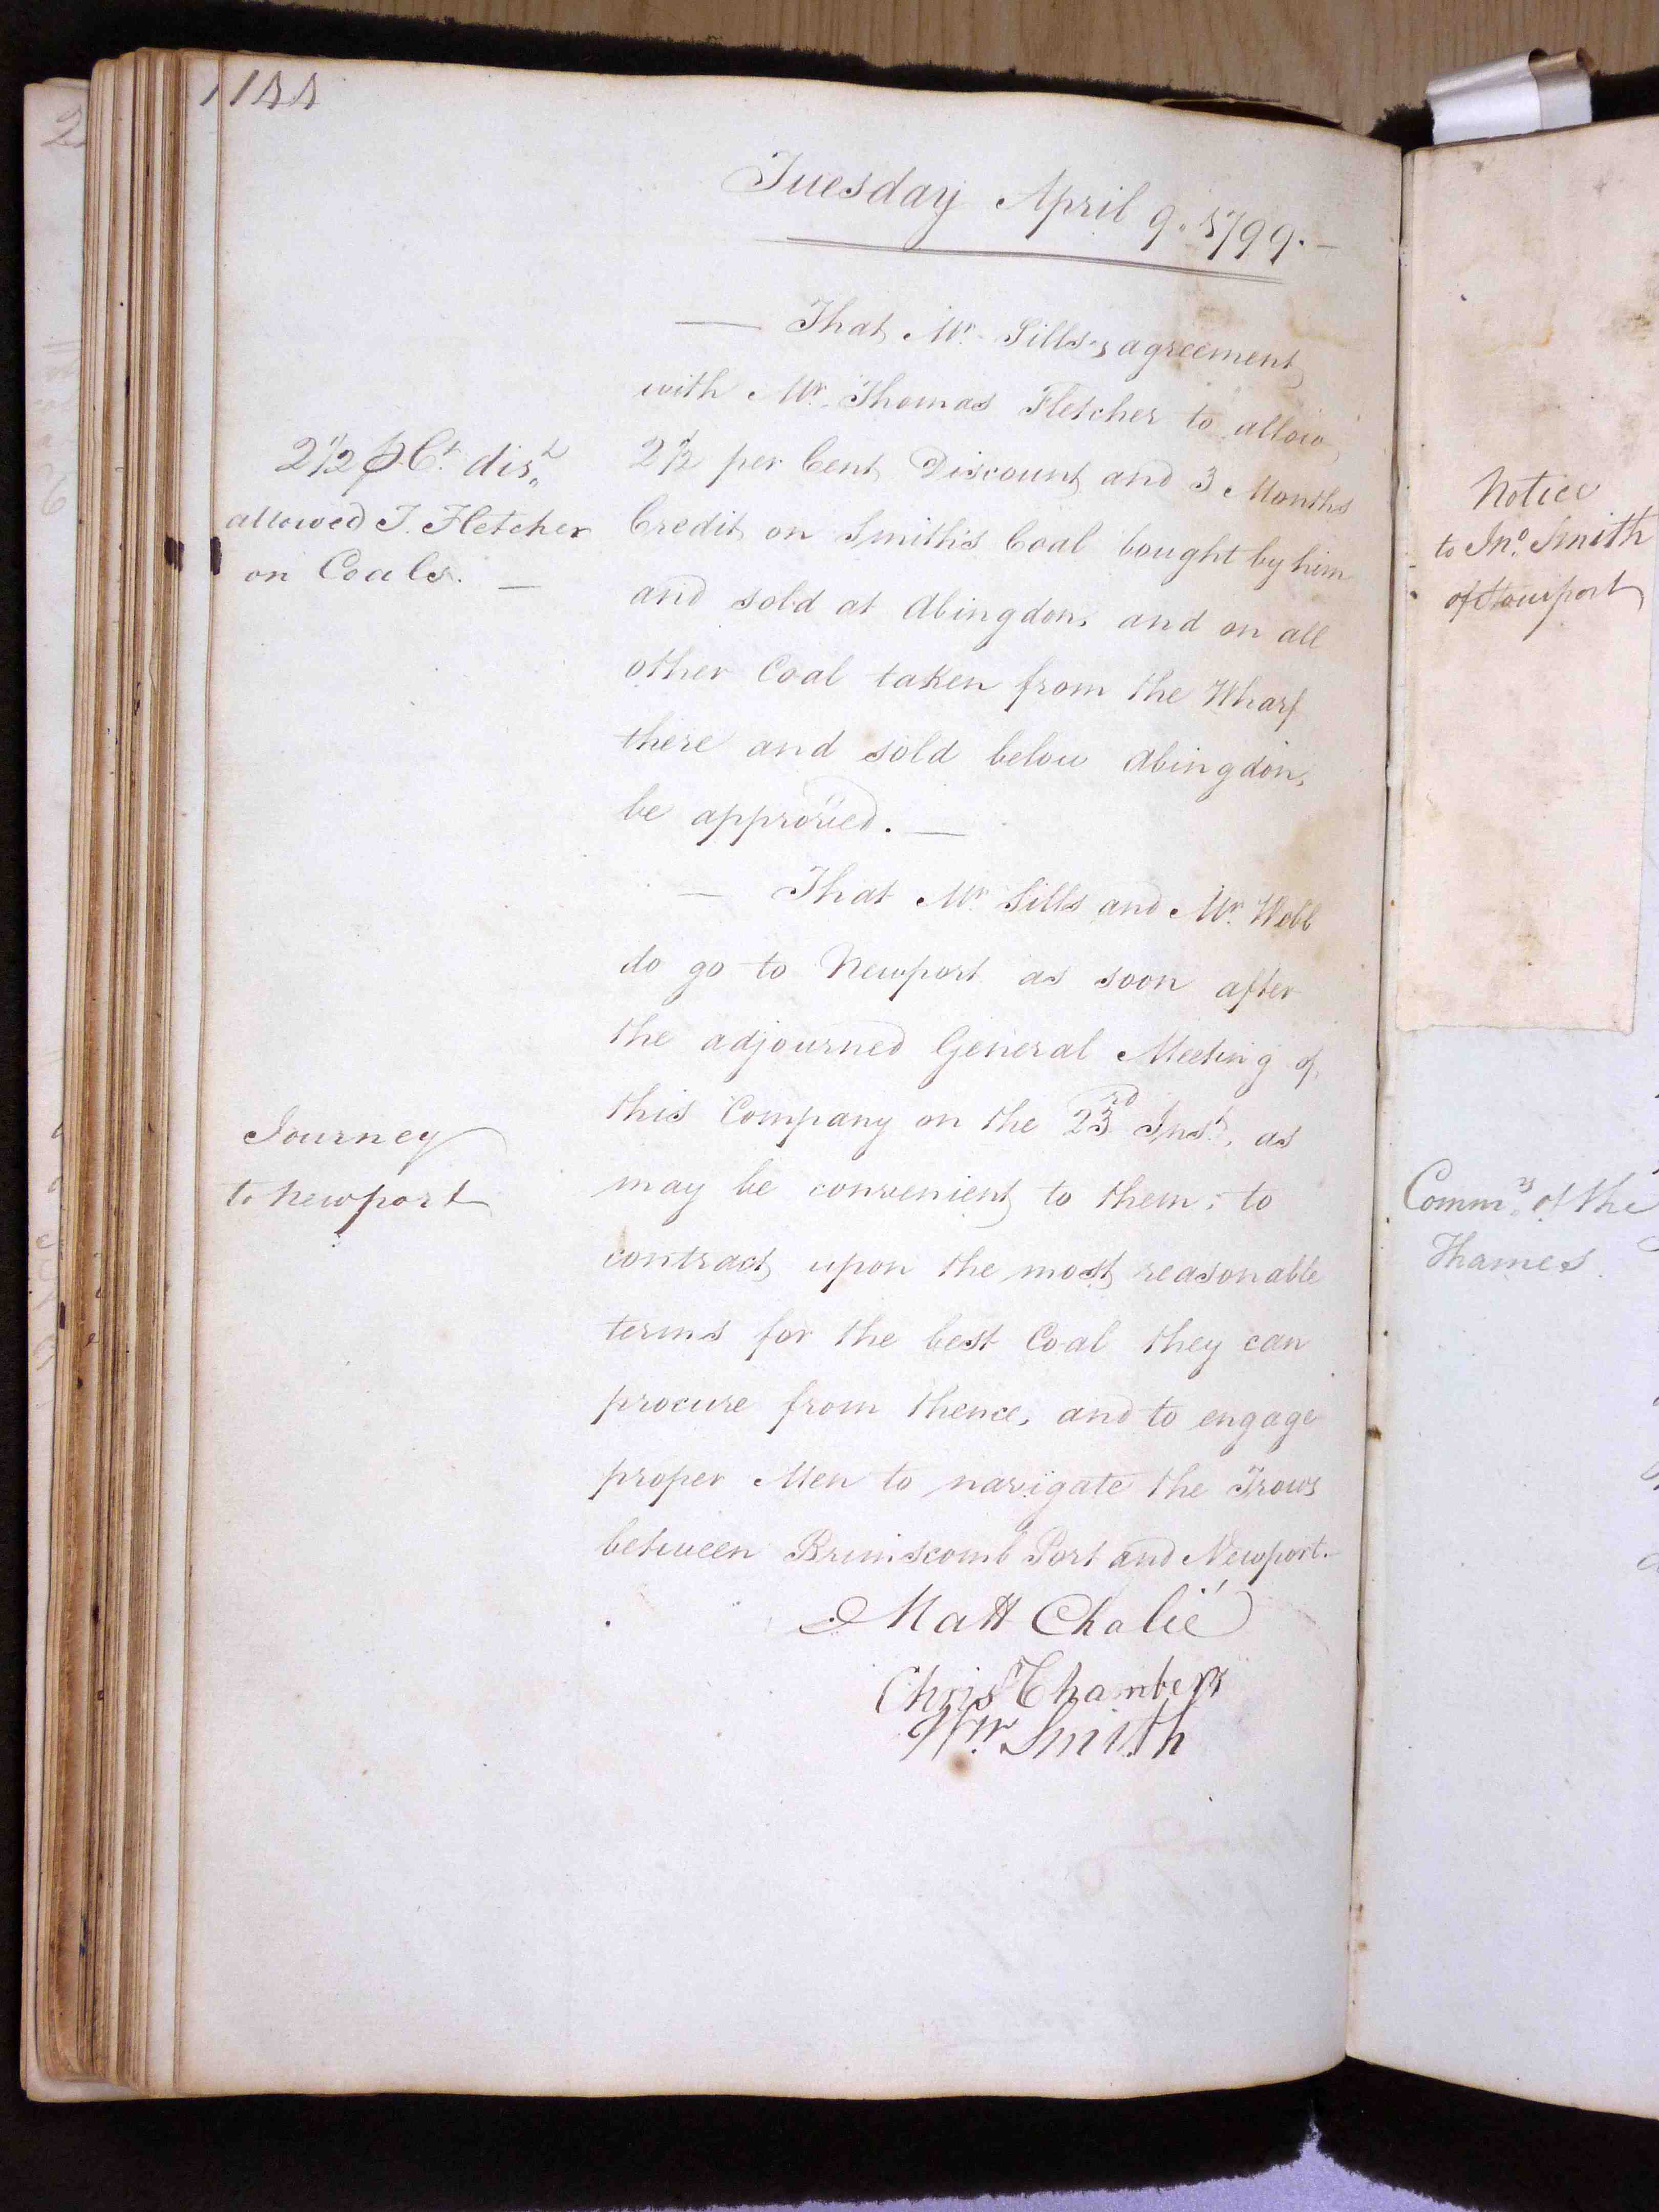 144
Tuesday April 9. 1799. —
— That Mr. Sills's agreement
with Mr. Thomas Fletcher to allow
2½ p Ct. dist.
allowed T. Fletcher
on Coals. —
2½ per Cent Discount and 3 Months
Credit on Smith's Coal bought by him
and sold at Abingdon, and on all
other Coal taken from the Wharf
there and sold below Abingdon,
be approved. —
— That Mr. Sills and Mr. Webb
do go to Newport as soon after
the adjourned General Meeting of
this Company on the 23rd Inst., as
Journey
to Newport
may be convenient to them; to
contract upon the most reasonable
terms for the best Coal they can
procure from thence, and to engage
proper Men to navigate the Trows
between Brimscomb Port and Newport. —
Matt Chalié
Chrisr Chambers
Wm. Smith
Notice
to Jno. Smith
of Stourport
Commrs. of the
Thames